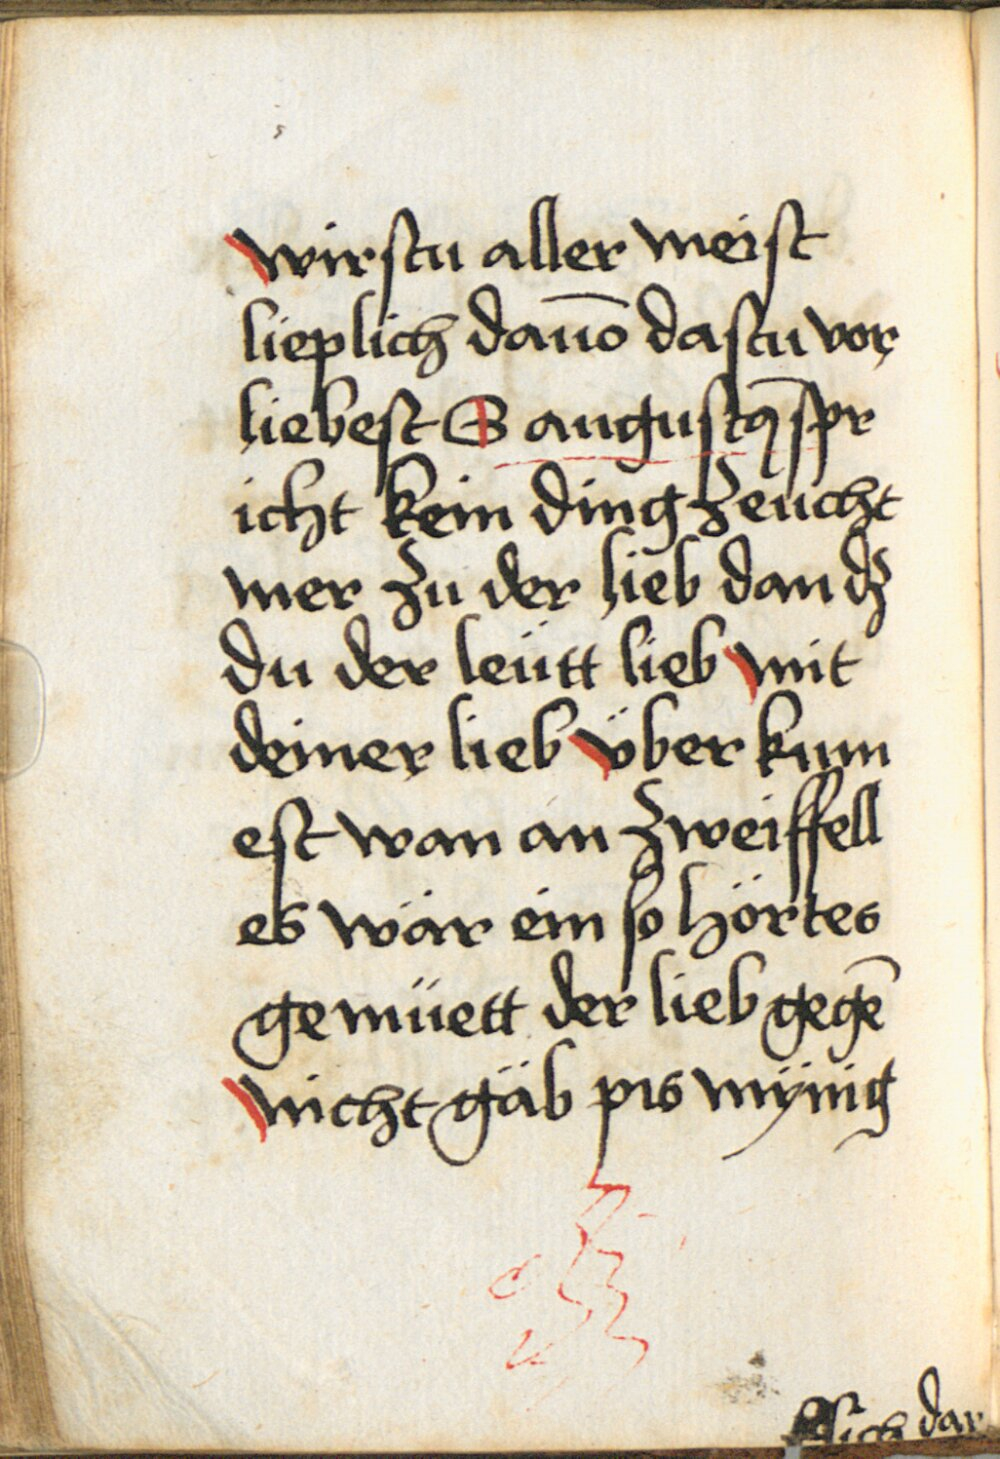 wirstu aller meist
lieplich dauō dastu vor
liebest S augustꝯ spr
icht kein ding zeucht
mer zu der lieb dan dz
du der leütt lieb mit
deiner lieb über kum
est wan an zweiffell
es wär ein so hörtes
gemüett der lieb gegē
nicht gäb pis mÿnig
sich dar